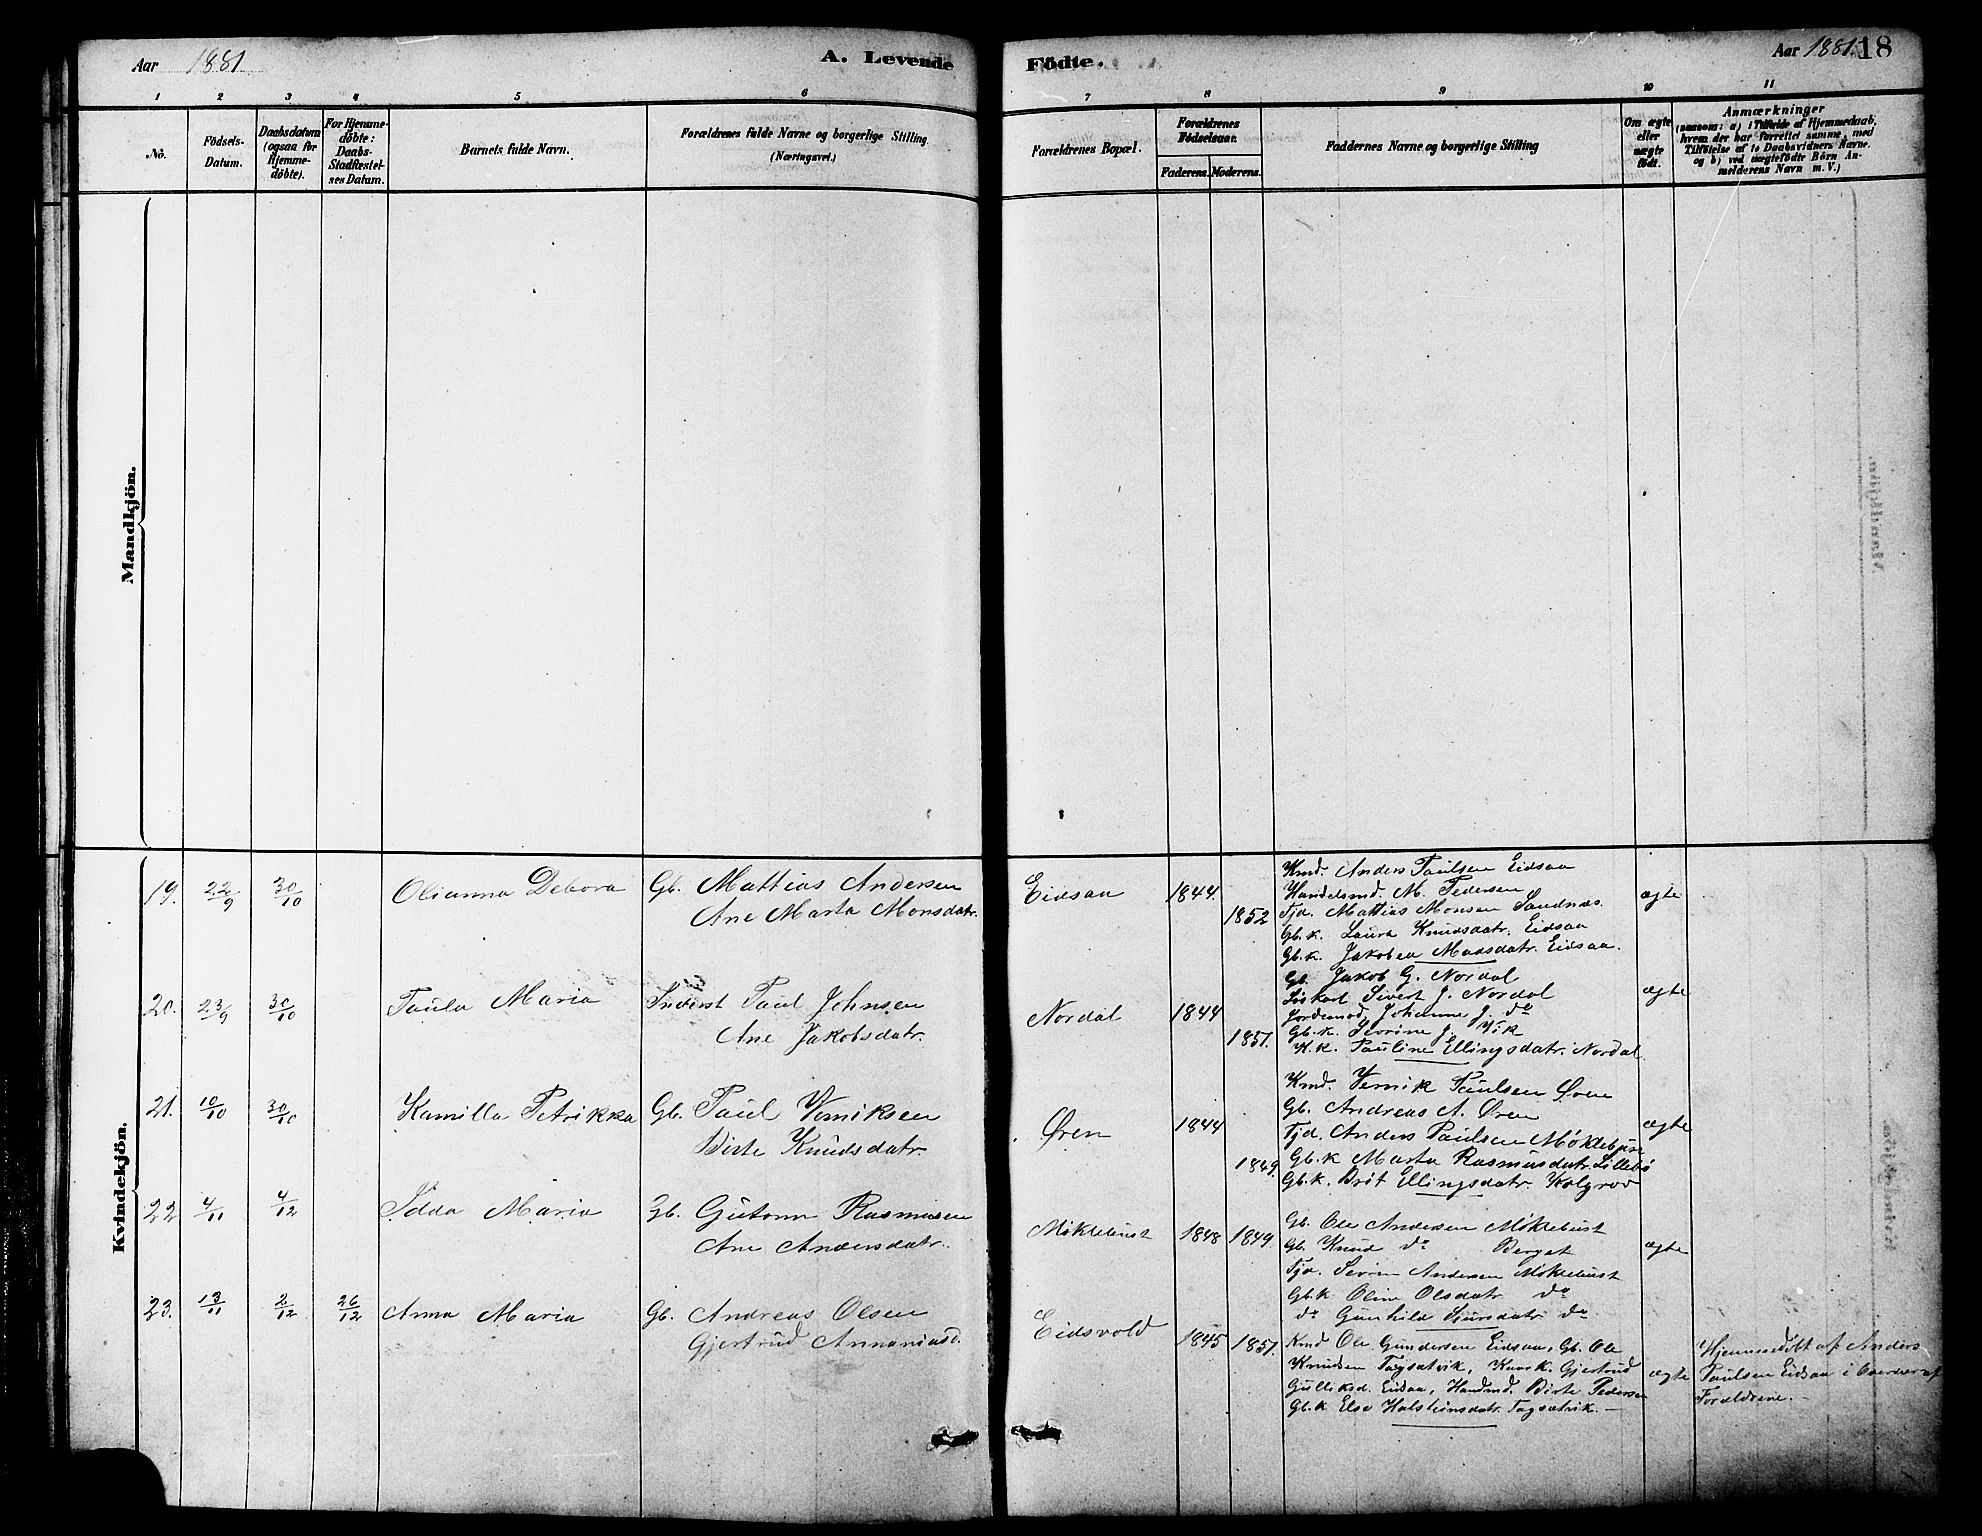 Aar 1881
A. Levende
Födte.
Aar 1881.
18
1 2 3 4 5 6
7 8 9 10 11
No.
Födsels-
Datum.
Daabsdatum
(ogsaa for
Hjemme-
döbte).
For Hjemme-
döbte:
Daabs-
Stadfæstel-
ses Datum.
Barnets fulde Navn.
Forældrenes fulde Navne og borgerlige Stilling
(Næringsvei.)
Forældrenes Bopæl.
Forældrenes
Födselsaar.
Faderens. Moderens.
Faddernes Navne og borgerlige Stilling
Om ægte
eller
uægte
födt.
Anmærkninger
(saasom: a) i Tilfælde af Hjemmedaab,
hvem der har forrettet samme, med
Tilföielse af to Daabsvidners Navne.
og b) ved uægtefödte Börn An-
melderens Navn m. V.)
Mandkjön.
Kvindekjön.
19. 22/9 30/10 Olianna Debora Gb. Mattias Andersen
Ane Marta Monsdatr.
Eidsaa 1844. 1852
Kmd. Anders Paulsen Eidsaa
Handelsmd. M. Pedersen
Tjd. Mattias Monsen Sandnæs.
Gb.k. Laura Knudsdatr. Eidsaa
Gb.k. Jakobea Madsdatr. Eidsaa.
ægte
20. 23/9 30/10 Paula Maria Inderst Paul Johnsen
Ane Jakobsdatr.
Nordal 1844 1851.
Gb. Jakob G. Nordal
Løskarl Sivert J. Nordal
Jordemod. Johanne J. do
Gb.k. Sevrine J. Vik
K.k. Pauline Ellingsdatr. Nordal
ægte
21. 10/10 30/10 Kamilla Petrikka Gb. Paul Vemiksen
Birte Knudsdatr.
Øren 1844 1849.
Kmd. Vemik Paulsen Øren
Gb. Andreas A. Øren
Tjd. Anders Paulsen Møklebust
Gb.k Marta Rasmusdatr. Lillebø
Gb.k. Brit Ellingsdatr. Kolgrov
ægte
22 4/11 4/12 Idda Maria Gb. Gutorm Rasmusen
Ane Andersdatr.
Møklebust 1848 1849.
Gb. Ole Andersen Møklebust
Gb. Knud do Berget
Tjd. Sevrin Andersen Møklebust
Gb.k Oline Olsdatr do
do Gunhild Sjursdatr do
ægte
23. 13/11 2/12 26/12 Anna Maria Gb. Andreas Olsen
Gjertrud Annaniasd.
Eidsvold 1845 1851.
Kmd Ole Gundersen Eidsaa, Gb. Ole
Knudsen Tagsatvik, Kaark. Gjertrud
Gulliksd. Eidsaa, Handmd. Birte Pedersen
Gb.k Else Halsteinsdatr. Tagsatvik.
ægte
Hjemmedøbt af Anders
Paulsen Eidsaa i Overvær af
Forældrene.